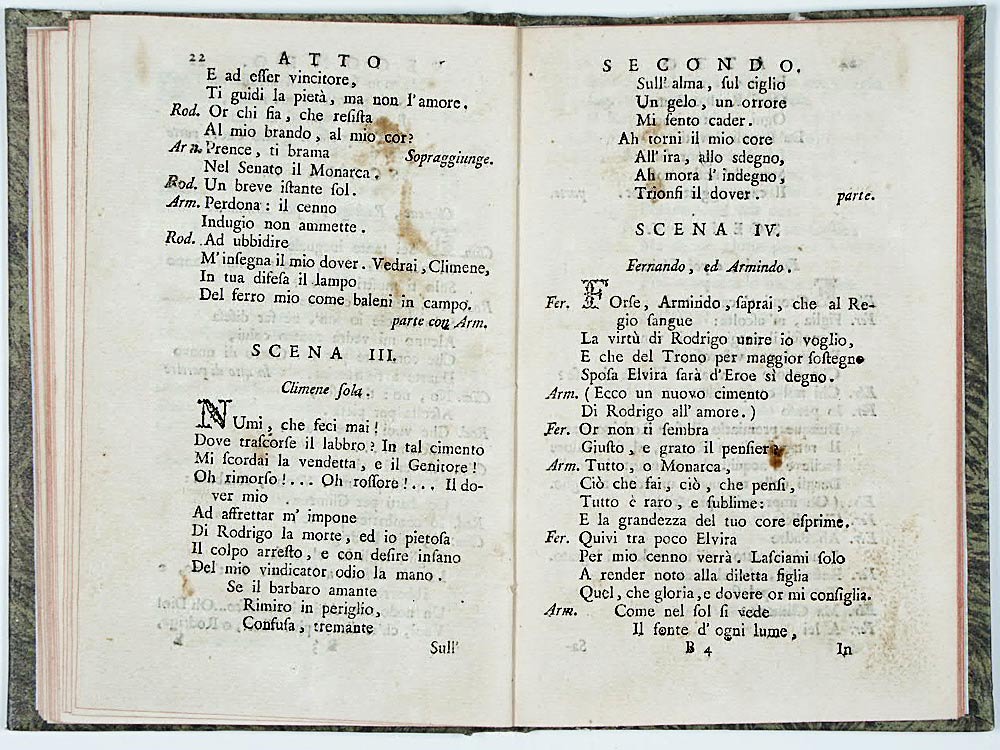 22 ATTO
E ad eſſer vincitore,
Ti guidi la pietà, ma non l'amore.
Rod. Or chi ſia, che reſiſta
Al mio brando, al mio cor?
Arm. Prence, ti brama Sopraggiunge.
Nel Senato il Monarca.
Rod. Un breve iſtante ſol.
Arm. Perdona: il cenno
Indugio non ammette.
Rod. Ad ubbidire
M'inſegna il mio dover. Vedrai, Climene,
In tua difeſa il lampo
Del ferro mio come baleni in campo.
parte con Arm.
SCENA III.
Climene ſola.
NUmi, che feci mai!
Dove traſcorſe il labbro? In tal cimento
Mi ſcordai la vendetta, e il Genitore!
Oh rimorſo!... Oh roſſore!... Il do-
ver mio
Ad affrettar m'impone
Di Rodrigo la morte, ed io pietoſa
Il colpo arreſto, e con deſire inſano
Del mio vindicator odio la mano.
Se il barbaro amante
Rimiro in periglio,
Confuſa, tremante
Sull'
SECONDO.
Sull'alma, ſul ciglio
Un gelo, un orrore
Mi ſento cader.
Ah torni il mio core
All'ira, allo sdegno,
Ah mora l'indegno,
Trionfi il dover. parte.
SCENA IV.
Fernando, ed Armindo.
Fer. FOrſe, Armindo, ſaprai, che al Re-
gio ſangue
La virtù di Rodrigo unire io voglio,
E che del Trono per maggior ſoſtegno
Spoſa Elvira ſarà d'Eroe sì degno.
Arm. (Ecco un nuovo cimento
Di Rodrigo all'amore.)
Fer. Or non ti ſembra
Giuſto, e grato il penſiero?
Arm. Tutto, o Monarca,
Ciò che fai, ciò, che penſi,
Tutto è raro, e ſublime:
E la grandezza del tuo core eſprime.
Fer. Quivi tra poco Elvira
Per mio cenno verrà. Laſciami ſolo
A render noto alla diletta figlia
Quel, che gloria, e dovere or mi conſiglia.
Arm. Come nel ſol ſi vede
Il fonte d'ogni lume,
B 4 In